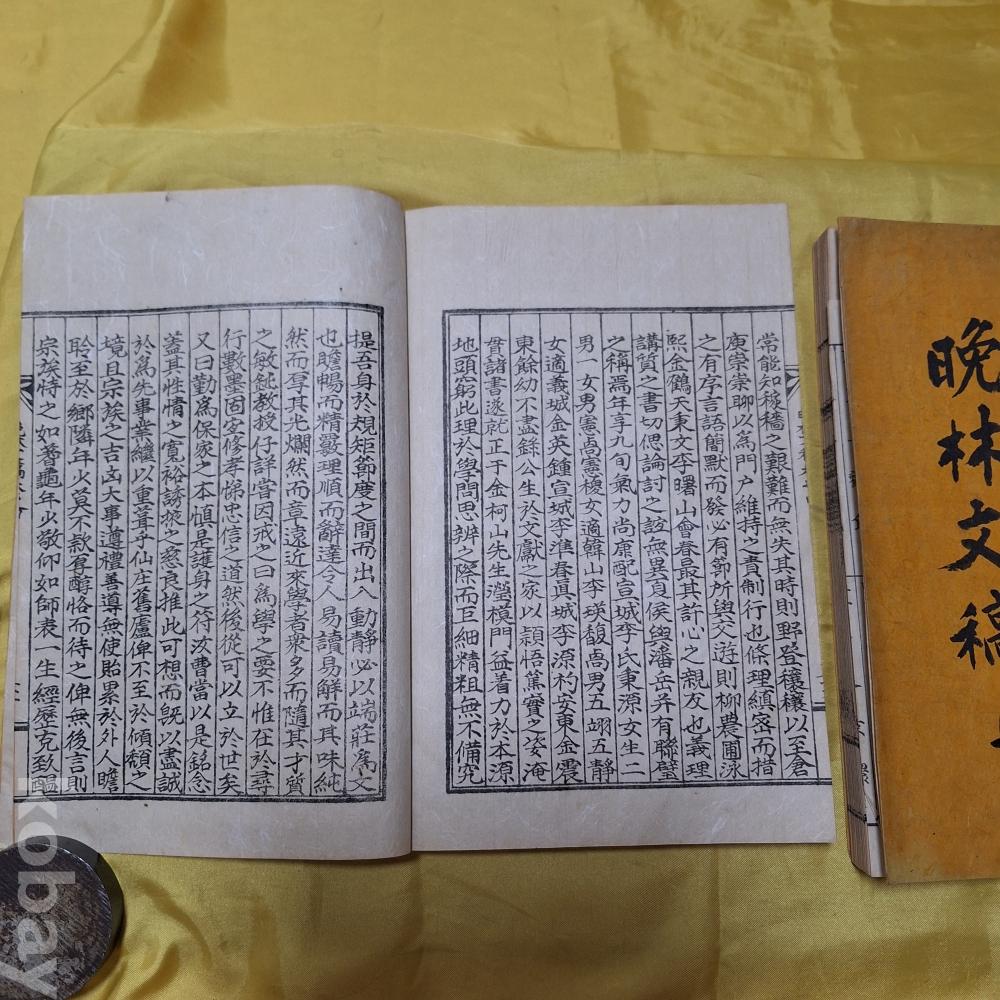 常能知稼穡之艱難而無失其時則野登穰穰以至倉
庾崇崇聊以爲門戶維持之責制行也條理縝密而措
之有序言語簡默而發必有節所與交遊則柳農圃泳
熙金鶴天東文李曙山會春最其許心之親友也義理
講質之書切偲論討之訪無異良侯與潘岳幷有聯璧
之稱焉年享九旬氣力尚康配宣城李氏秉源女生二
男一女男憲卨憲稷女適韓山李瑛馥卨男五翊五靜
女適義城金英鍾宣城李準春眞城李源杓安東金震
東餘幼不盡錄公生於文獻之家以穎悟篤實之姿淹
貫諸書遂就正于金柯山先生瀅模門益着力於本源
地頭窮此理於學問思辨之際而巨細精粗無不備究
提吾身於規矩節度之間而出入動靜必以端莊爲文
也瞻暢而精覈理順而辭達令人易讀易解而其味純
然而羣其光爛然而章遠近來學者衆多而隨其才質
之敏鈍教授仔詳嘗因戒之曰爲學之要不惟在於尋
行數墨固宜修孝悌忠信之道然後從可以立於世矣
又曰勤爲保家之本愼是護身之符汝曹當以是銘念
蓋其性情之寬裕誘掖之慈良推此可想而旣以盡誠
於爲先事業繼以重葺乎仙庄舊廬俾不至於傾頹之
境且宗族之吉凶大事遵禮善導無使貽累於外人瞻
聆至於鄉隣年少莫不款愛醇恪而待之俾無後言則
宗族恃之如蓍龜年少敬仰如師表一生經歷克致醞
晩林文稿
kobay